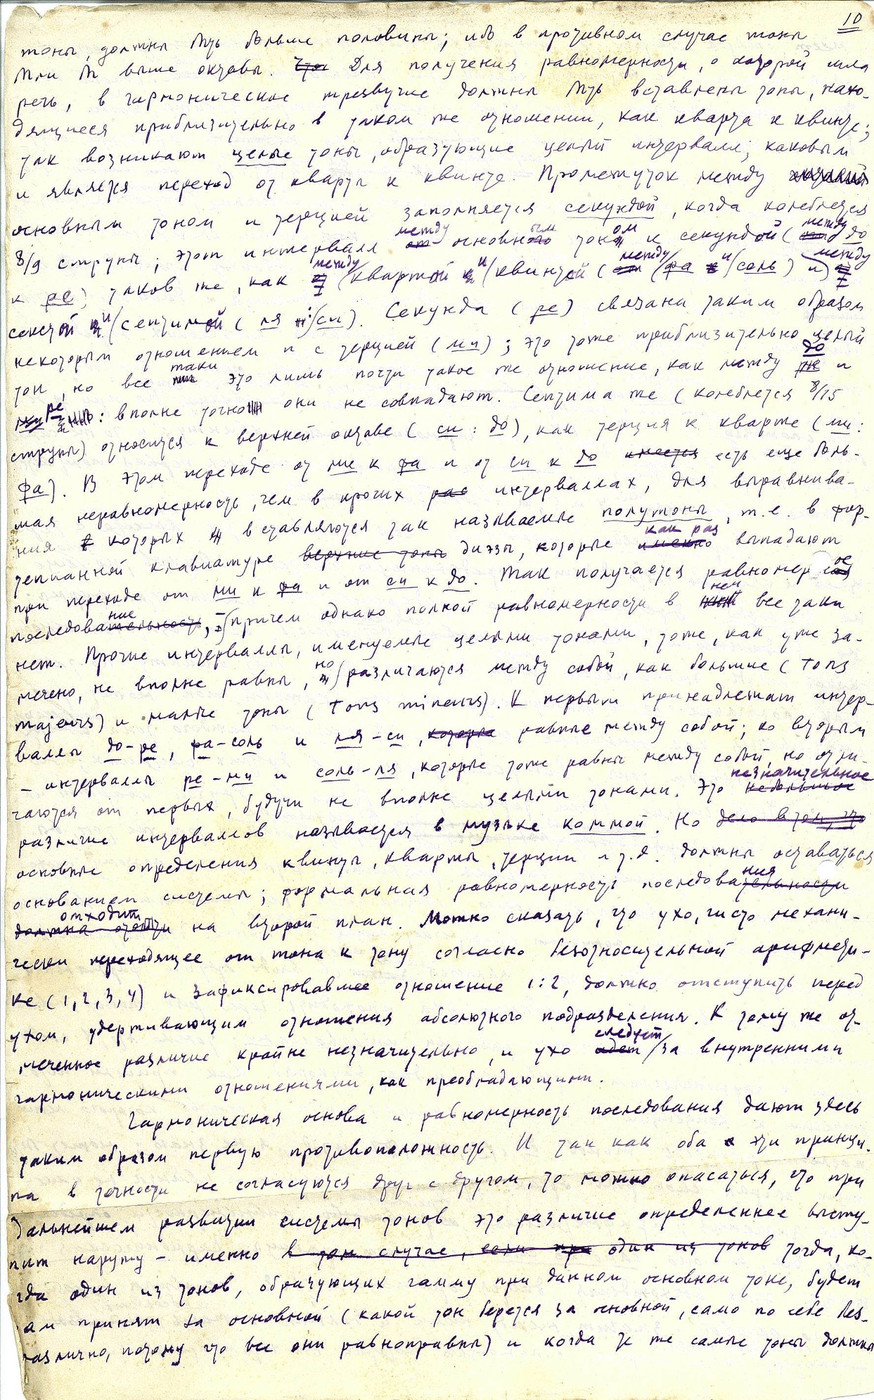 10
тоны, должны быть больше половины; ибо в противном случае тоны
были б выше октавы. Для получения равномерности, о которой шла
речь, в гармоническое трезвучие должны быть вставлены тоны, нахо-
дящиеся приблизительно в таком же отношении, как кварта к квинте;
так возникают целые тоны, образующие целый интервал; каковым
и является переход от кварты к квинте. Промежуток между
основным тоном и терцией заполняется секундой, когда колеблется
8/9 струны; этот интервалл между основным тоном и секундой (между до
и ре) таков же, как между квартой и квинтой (между фа и соль) и между
секстой и септимой (ля и си). Секунда (ре) связана таким образом
некоторым отношением и с терцией (ми); это тоже приблизительно целый
тон, но все таки это лишь почти такое же отношение, как между до и
ре: вполне точно они не совпадают. Септима же (колеблется 8/15
струны) относится к верхней октаве (си : до), как терция к кварте (ми :
фа). В этом переходе от ми к фа и от си к до есть еще боль-
шая неравномерность, чем в прочих интерваллах, для выравнива-
ния которых и вставляются так называемые полутоны, т.е. в фор-
тепианной клавиатуре верхние тоны диэзы, которые как раз выпадают
при переходе от ми к фа и от си к до. Так получается равномерное
последование, причем однако полной равномерности в нем все таки
нет. Прочие интерваллы, именуемые целыми тонами, тоже, как уже за-
мечено, не вполне равны, но различаются между собой, как большие (tons
majeurs) и малые тоны (tons mineurs). К первым принадлежат интер-
валлы до-ре, фа-соль и ля-си, которые равные между собой; ко вторым
– интерваллы ре-ми и соль-ля, которые тоже равны между собой, но отли-
чаются от первых, будучи не вполне целыми тонами. Это незначительное
различие интервалов называется в музыке коммой. Но дело в том, что
основные определения квинты, кварты, терции и т.д. должны оставаться
основанием системы; формальная равномерность последования
отходит на второй план. Можно сказать, что ухо, чисто механи-
чески переходящее от тона к тону согласно безотносительной арифмети-
ке (1, 2, 3, 4) и зафиксировавшее отношение 1:2, должно отступить перед
ухом, удерживающим отношения абсолютного подразделения. К тому же от-
меченное различие крайне незначительно, и ухо следует за внутренними
гармоническими отношениями, как преобладающими.
Гармоническая основа и равномерность последования дают здесь
таким образом первую противоположность. И так как оба эти принци-
па в точности не согласуются друг с другом, то можно опасаться, что при
дальнейшем развитии системы тонов это различие определеннее высту-
пит наружу – именно в том случае, если при один из тонов тогда, ко-
гда один из тонов, образующих гамму при данном основном тоне, будет
сам принят за основной (какой тон берется за основной, само по себе без-
различно, потому что все они равноправны) и когда те же самые тоны должны